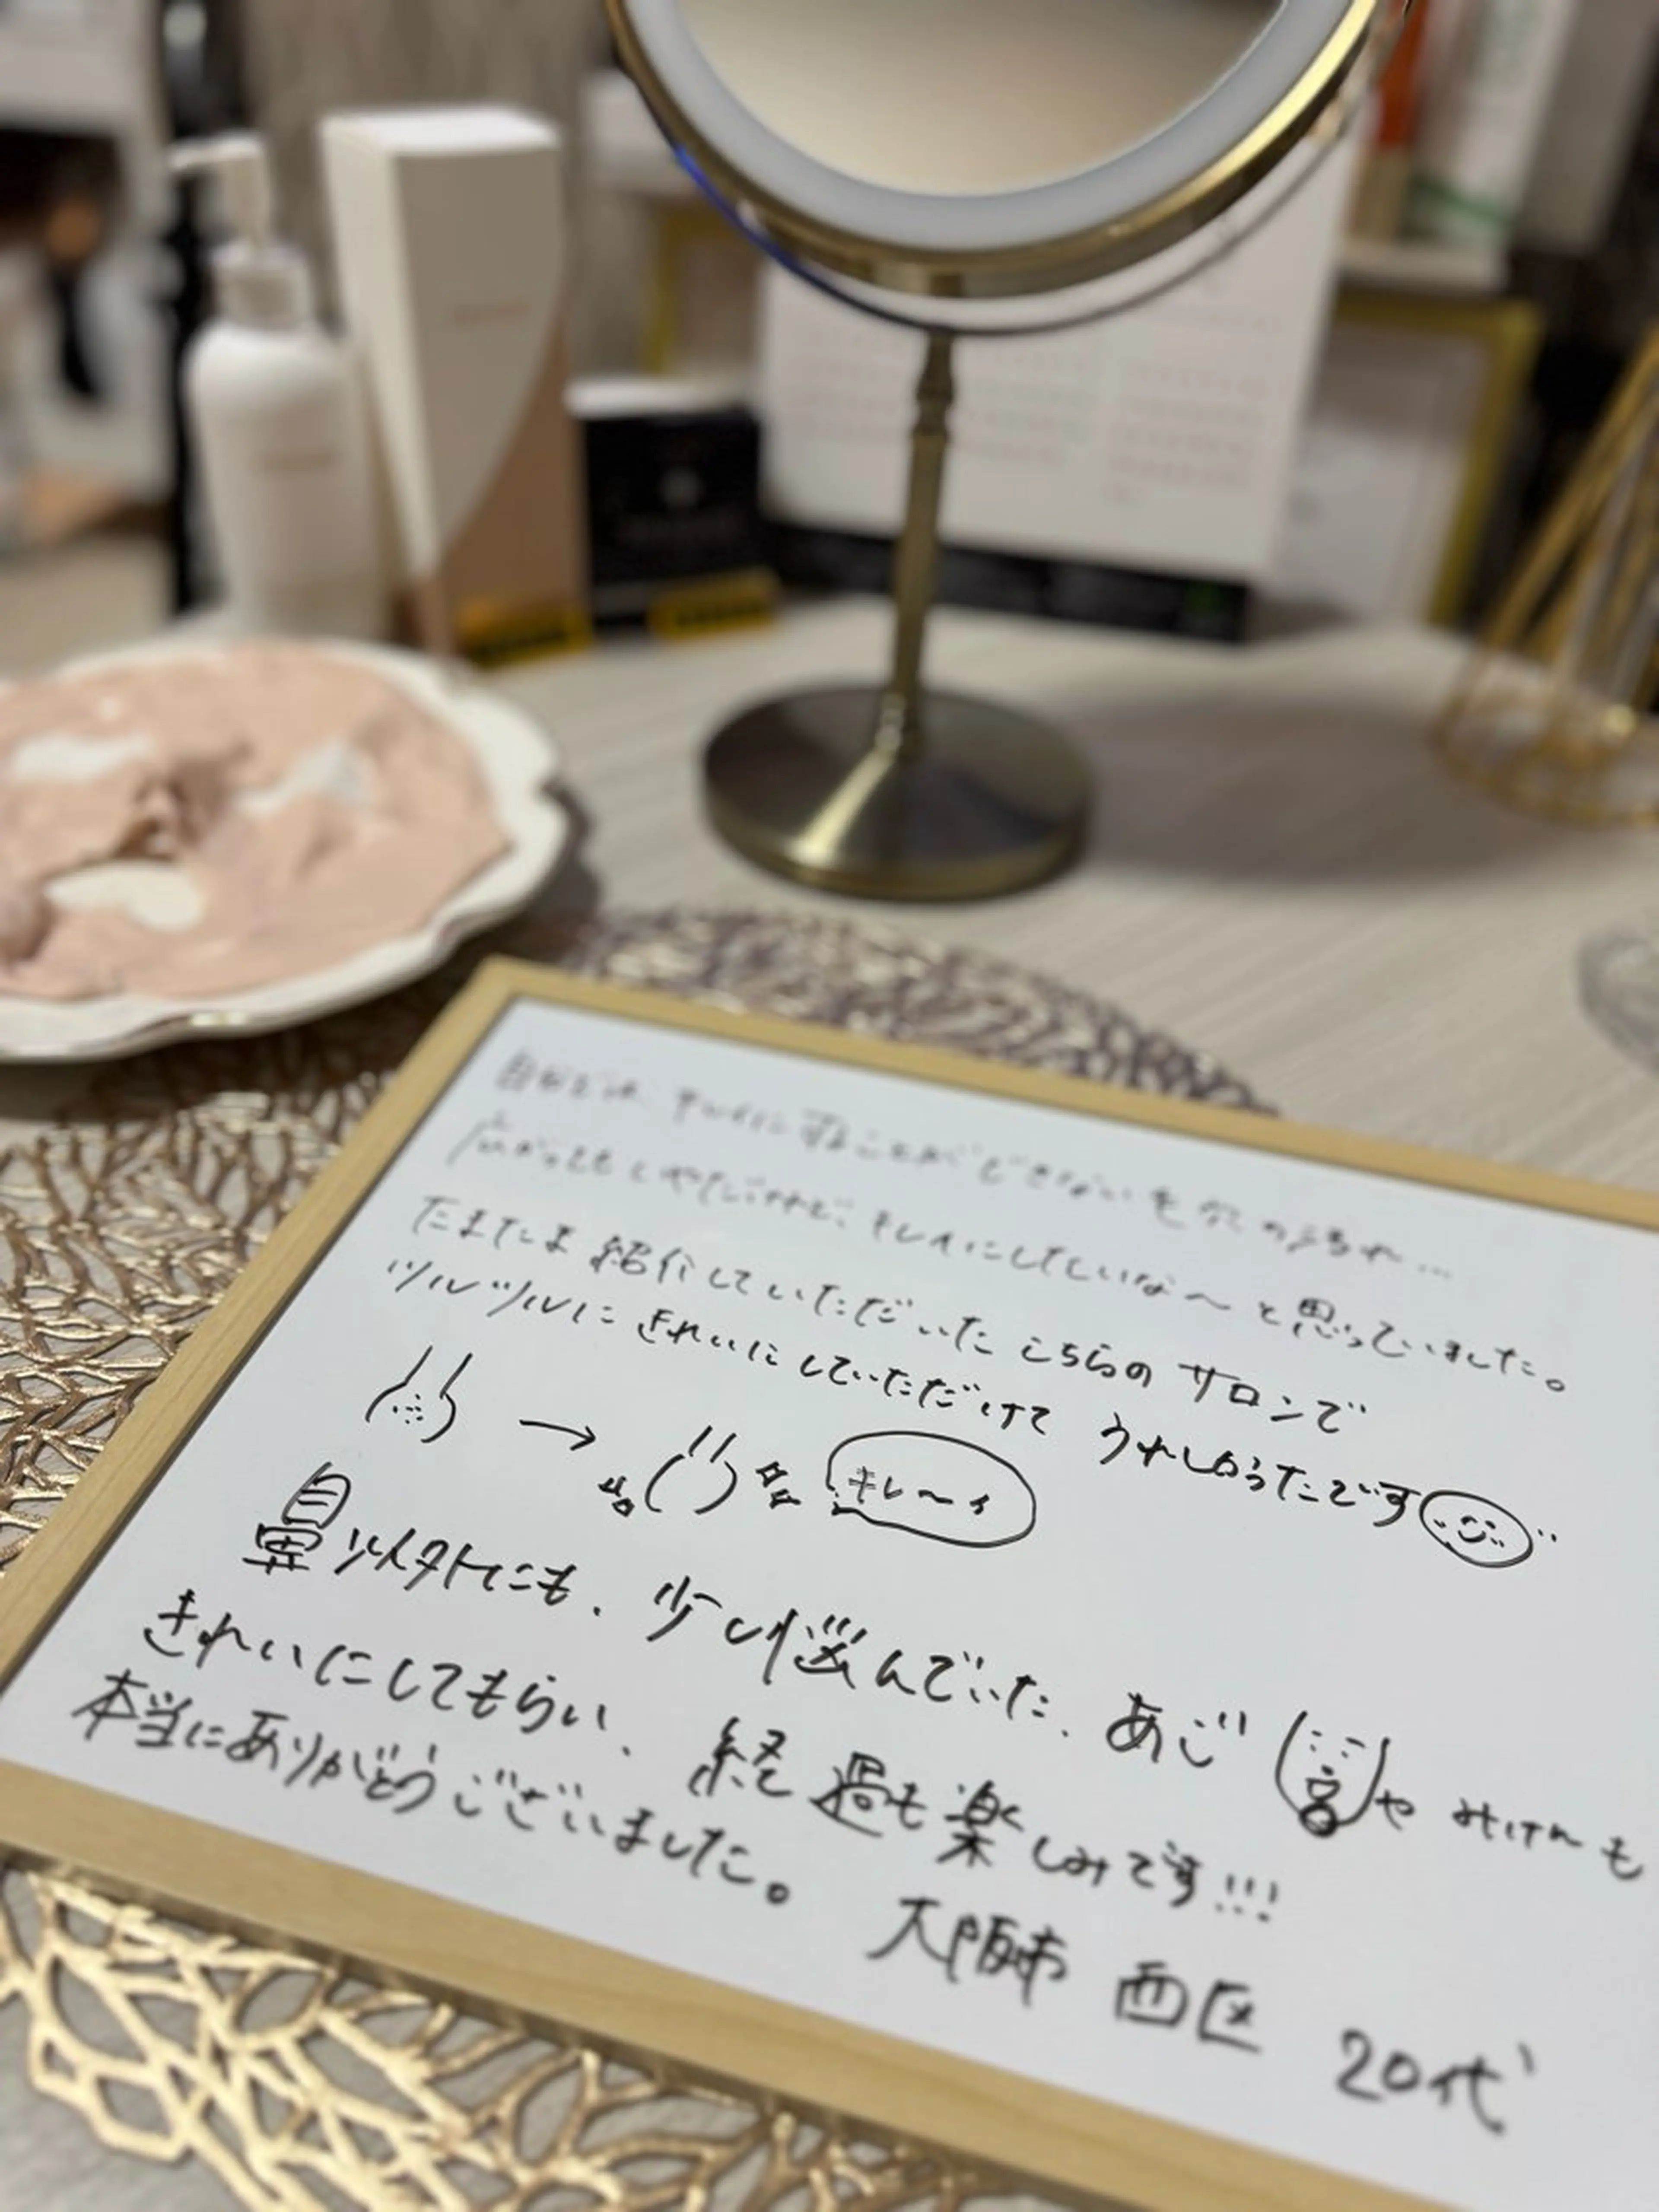 自分では、キレイにすることができない毛穴の汚れ…
広がってもしゃだけど、キレイにしたいな〜と思っていました。
たまたま紹介していただいたこちらのサロンで
ツルツルにきれいにしていただけてうれしかったです
キレ〜イ
鼻以外にも、少し悩んでいた、あご や みけんも
きれいにしてもらい、経過も楽しみです!!!
本当にありがとうございました。
大阪市 西区 20代